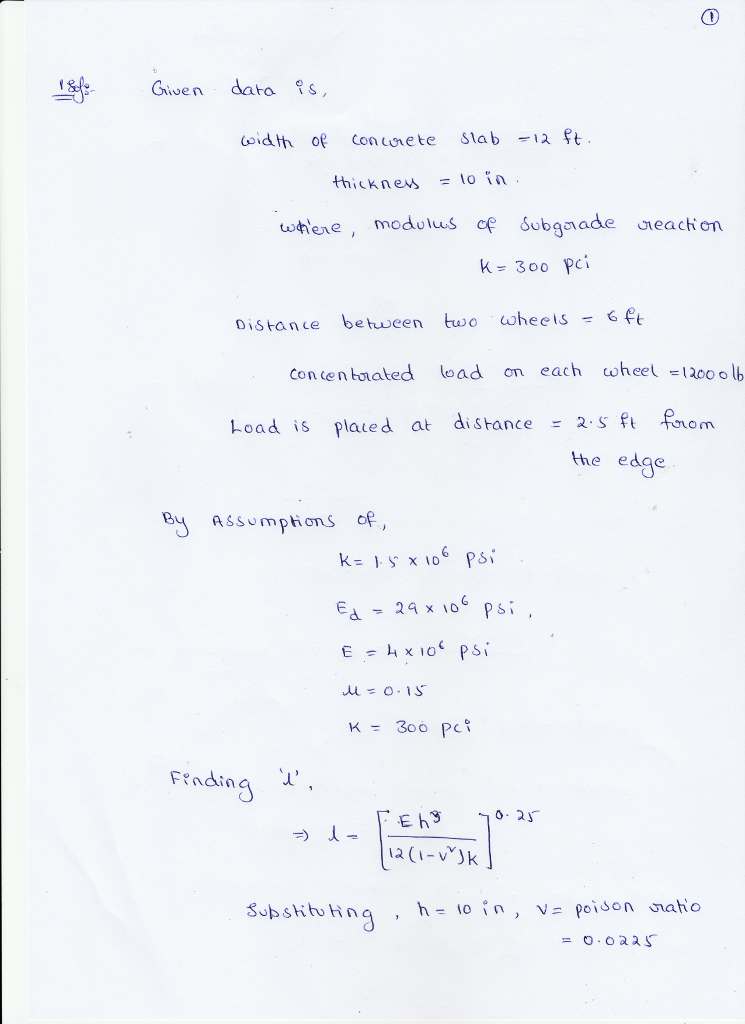 1
1 Sol:-
Given data is,
width of concrete slab = 12 ft.
thickness = 10 in.
where, modulus of subgrade reaction
K = 300 pci
Distance between two wheels = 6 ft
concentrated load on each wheel = 12000 lb
Load is placed at distance = 2.5 ft from
the edge.
By Assumptions of,
K = 1.5 x 10⁶ psi
E_d = 29 x 10⁶ psi,
E = 4 x 10⁶ psi
μ = 0.15
K = 300 pci
Finding 'l',
⇒ l = [Eh³ / 12(1-ν²)k]^0.25
Substituting, h = 10 in, v = poison ratio
= 0.0225